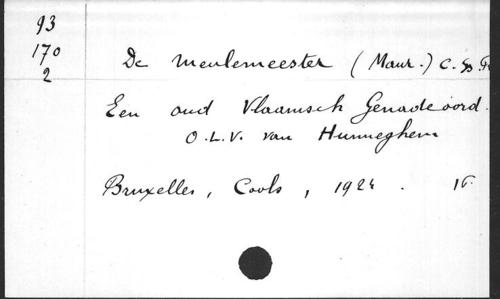 93
170
2
De Meulemeester (Maur.) C. SS. R.
Een oud Vlaamsch Genadeoord.
O.L.V. van Hunneghem
Bruxelles, Cools, 1924. 16.